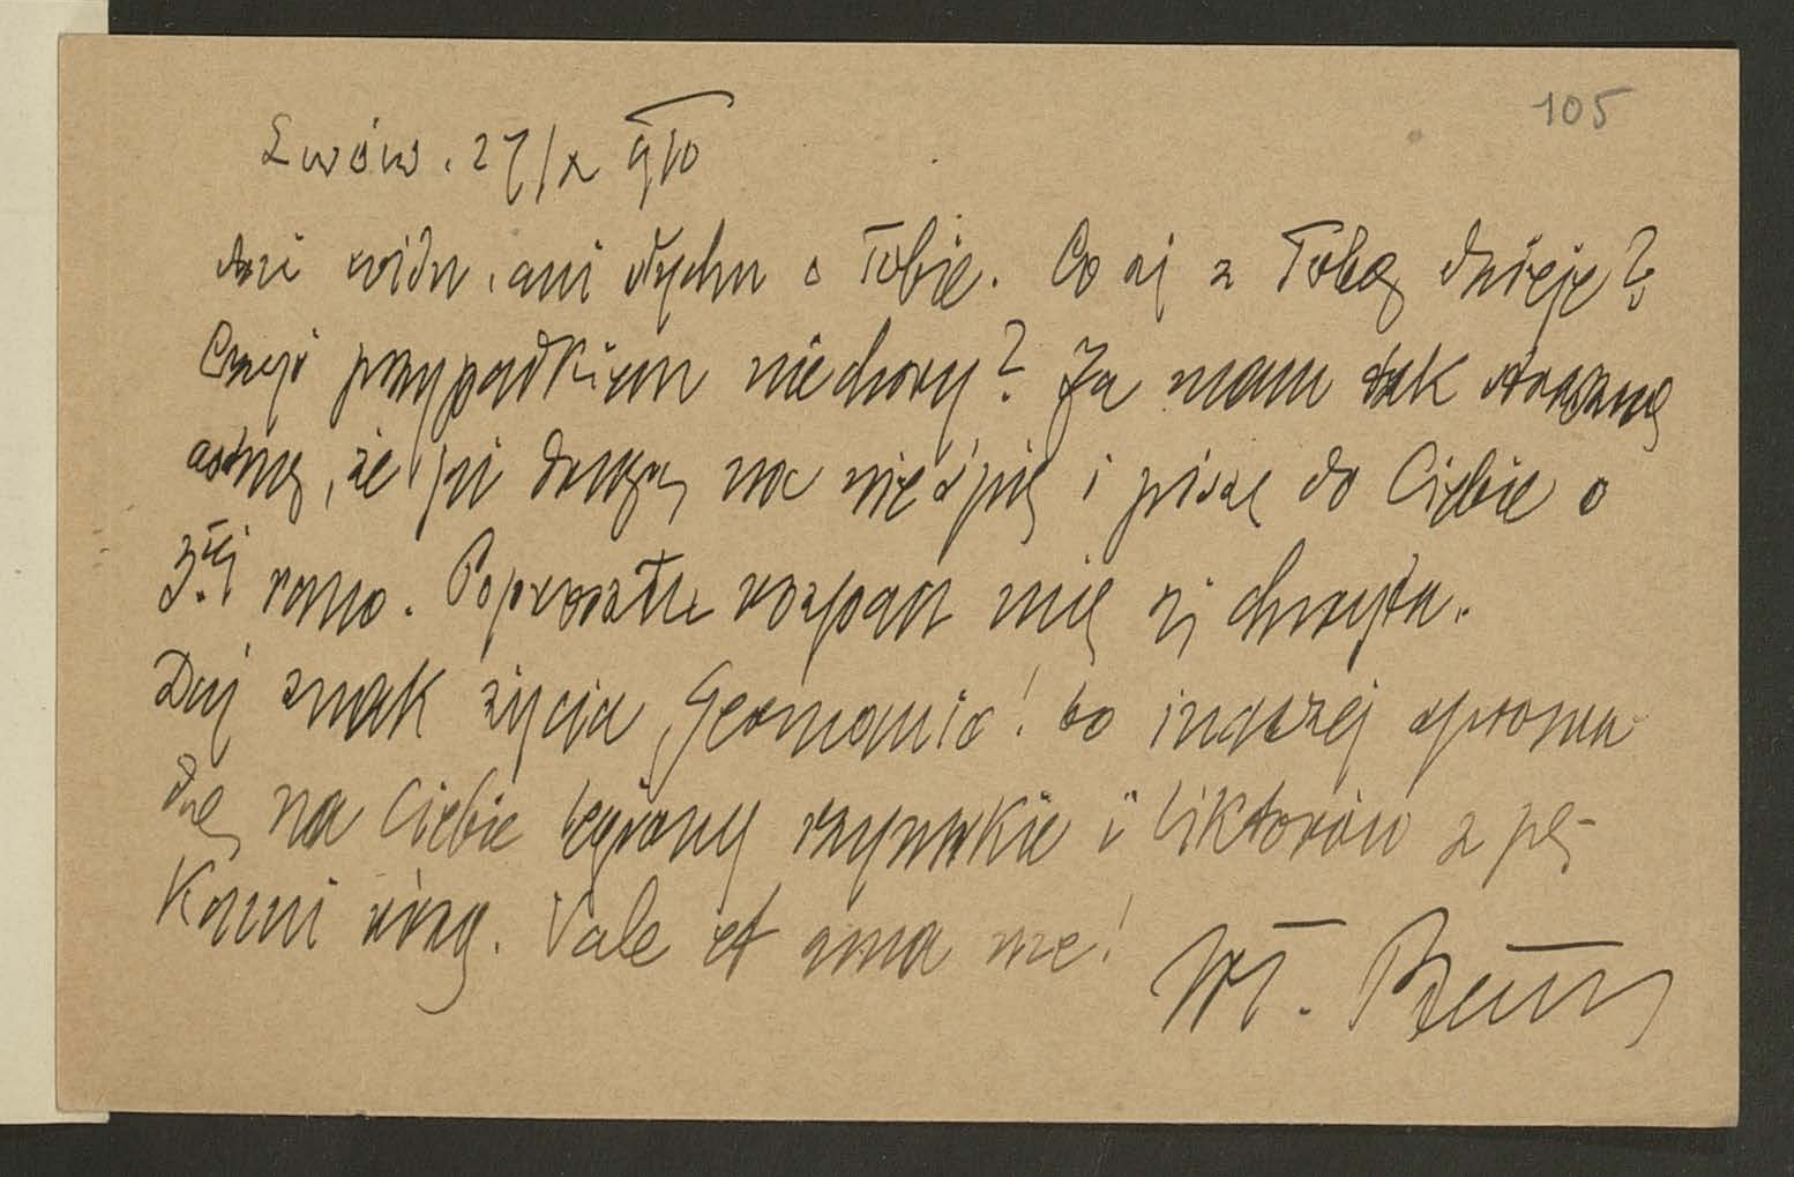 105
Lwów. 27/X 910
Ani widu, ani słychu o Tobie. Co się z Tobą dzieje?
Czyś przypadkiem nie chory? Ja mam tak straszną
astmę, że już drugą noc nie śpię i piszę do Ciebie o
3.ciej rano. Poprostu rozpacz mię się chwyta.
Daj znak życia, Germanio! bo inaczej sprowa
dzę na Ciebie legiony rzymskie i liktorów z pę-
kami rózg. Vale et ama me!
Wł.